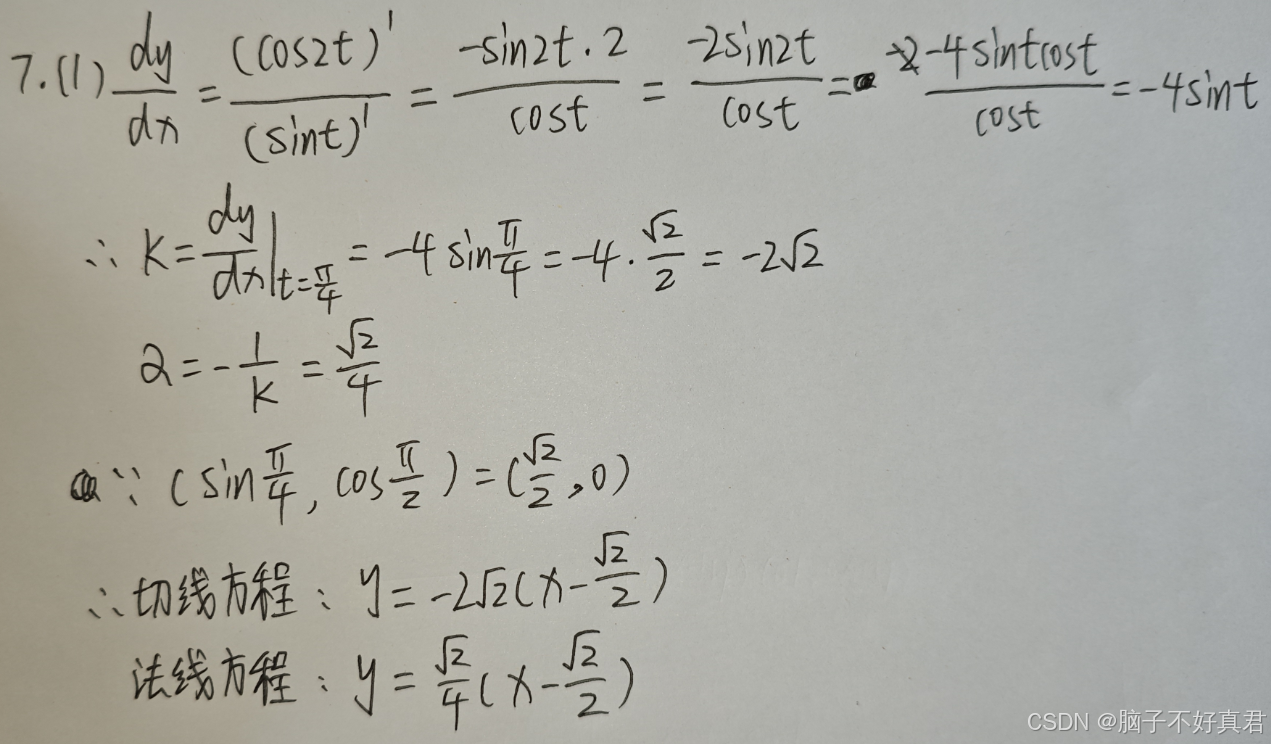 7.(1) dy/dx = (cos2t)'/(sint)' = -sin2t·2/cost = -2sin2t/cost = -4sintcost/cost = -4sint
∴ k = dy/dx|t=π/4 = -4 sin π/4 = -4·√2/2 = -2√2
2 = -1/k = √2/4
∵ (sin π/4, cos π/2) = (√2/2, 0)
∴切线方程: y = -2√2(x-√2/2)
法线方程: y = √2/4(x-√2/2)
CSDN @脑子不好真君